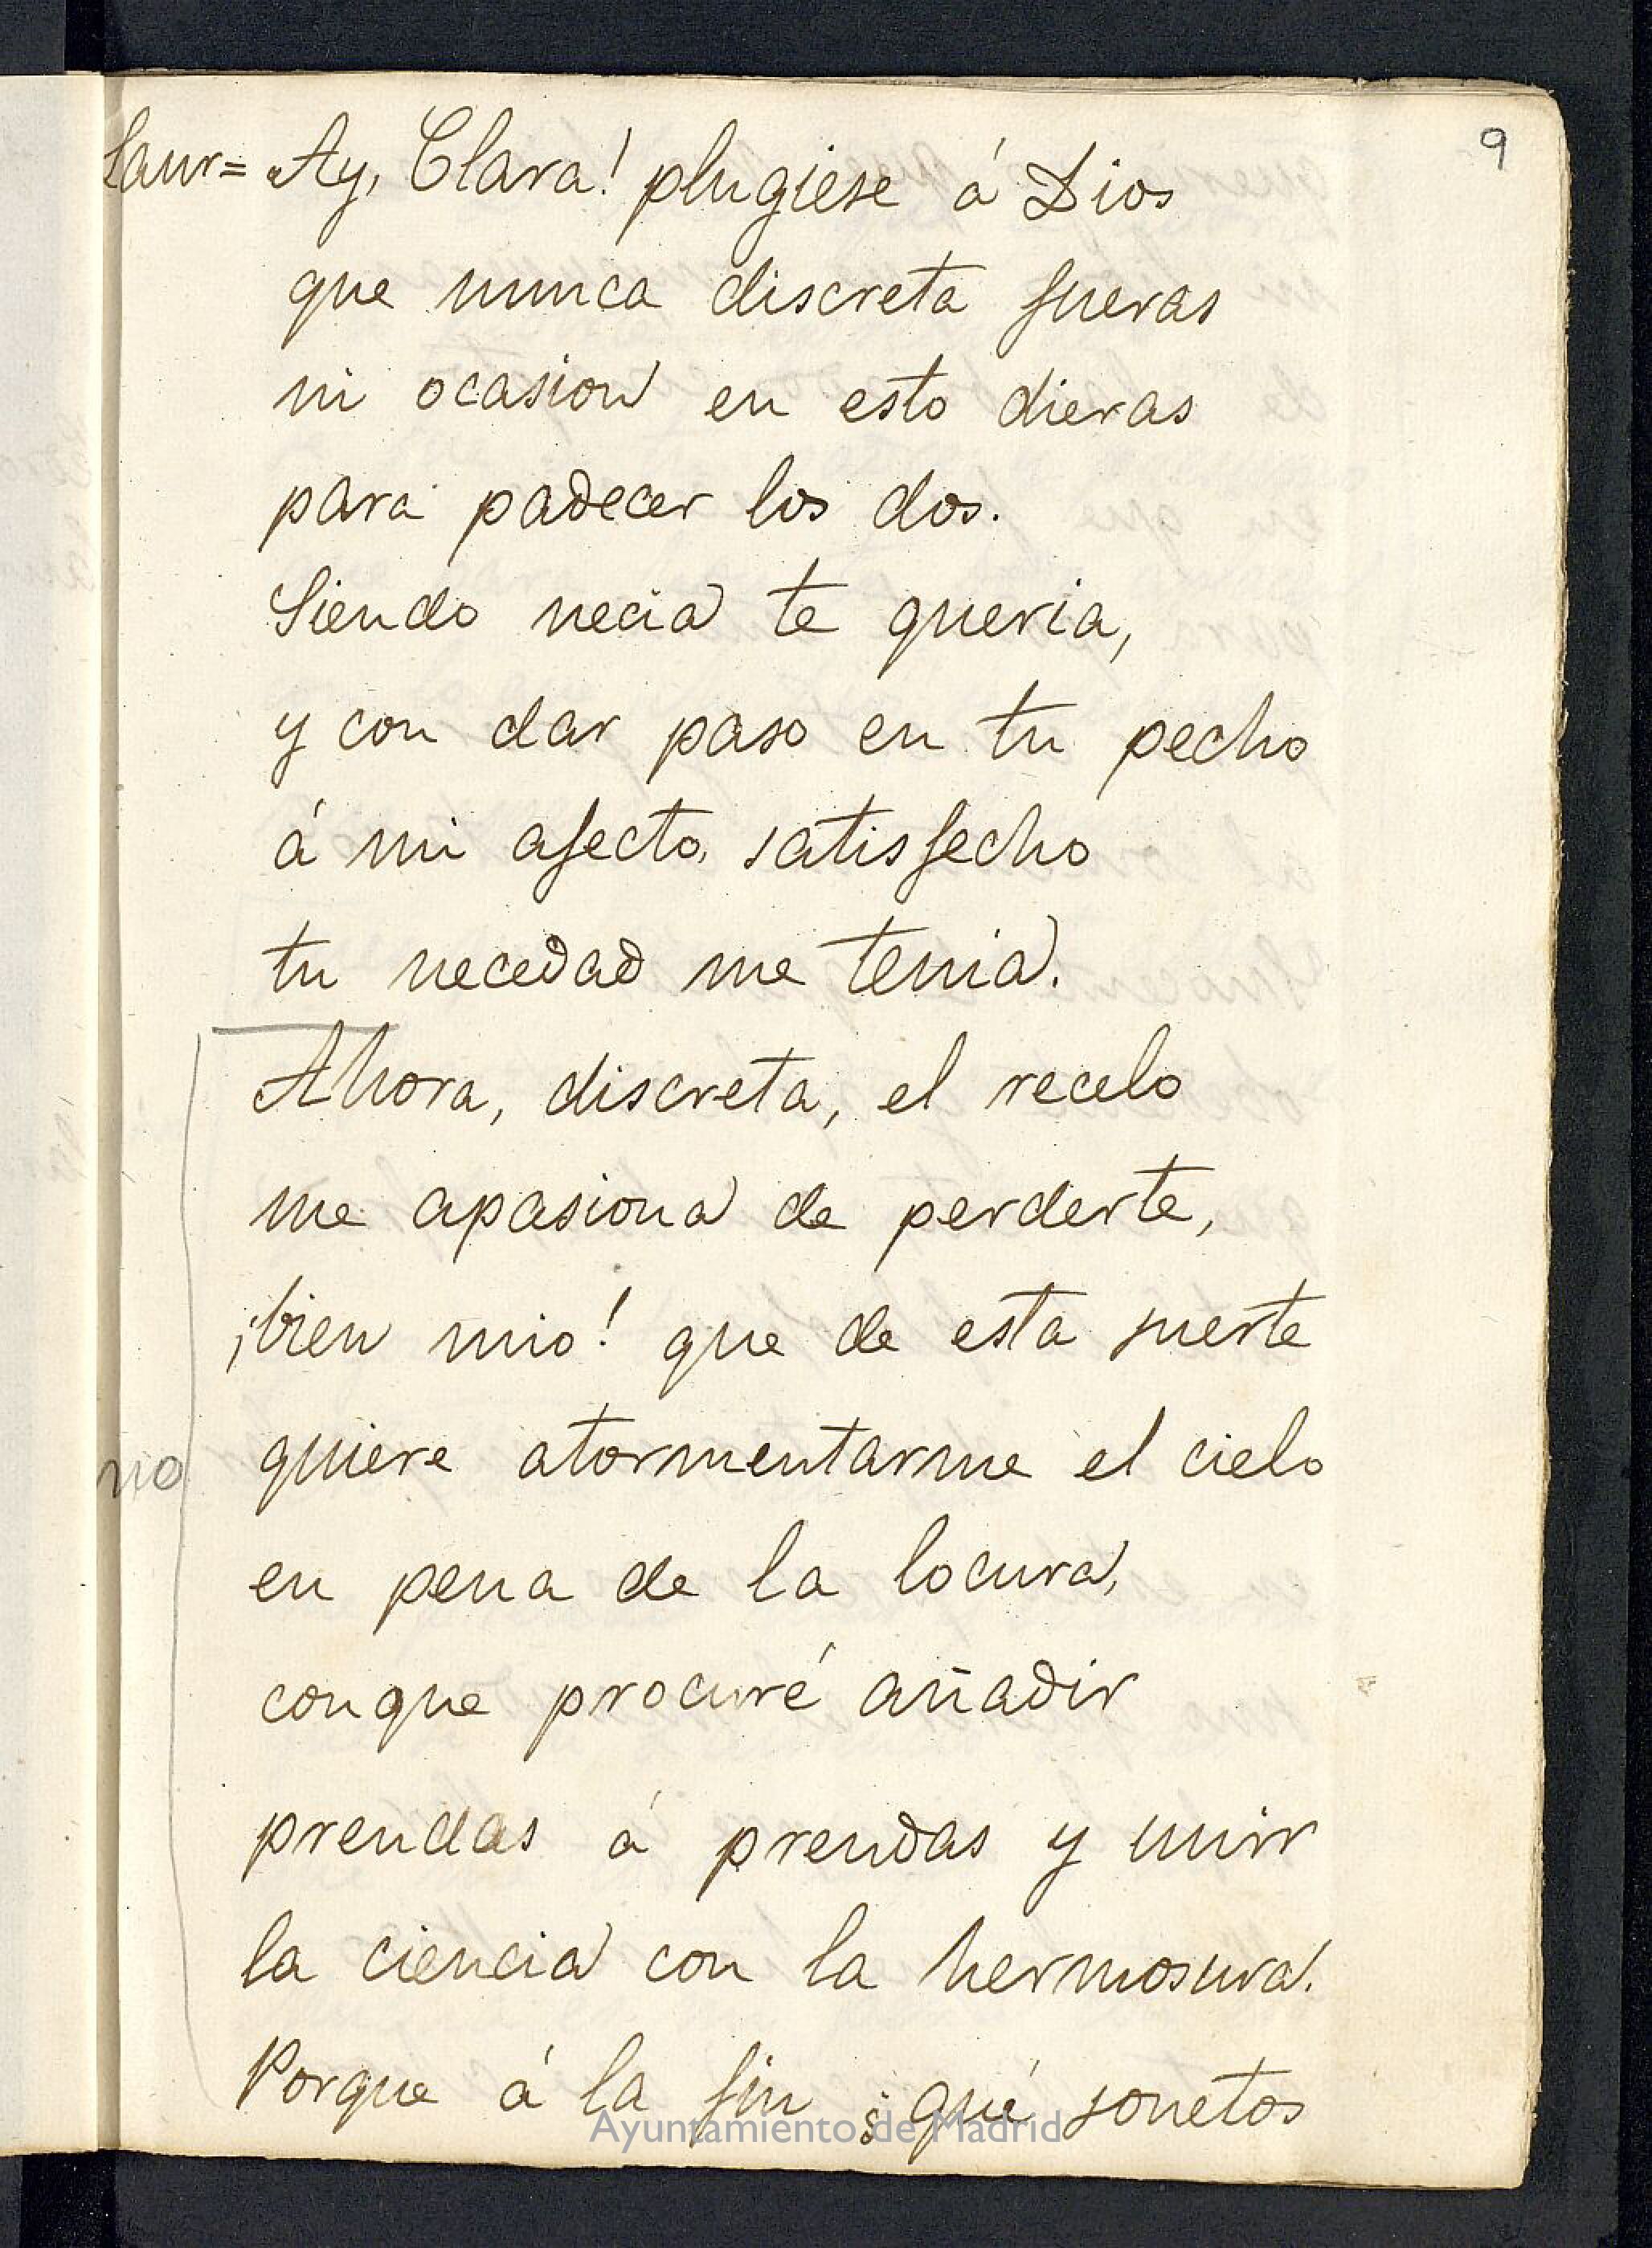 9
Laur= Ay, Clara! plugiese á Dios
que nunca discreta fueras
ni ocasion en esto dieras
para padecer los dos.
Siendo necia te queria,
y con dar paso en tu pecho
á mi afecto, satisfecho
tu necedad me tenia.
Ahora, discreta, el recelo
me apasiona de perderte,
¡bien mio! que de esta suerte
no quiere atormentarme el cielo
en pena de la locura,
conque procuré añadir
prendas á prendas y unir
la ciencia con la hermosura.
Porque á la fin ¿qué sonetos
Ayuntamiento de Madrid